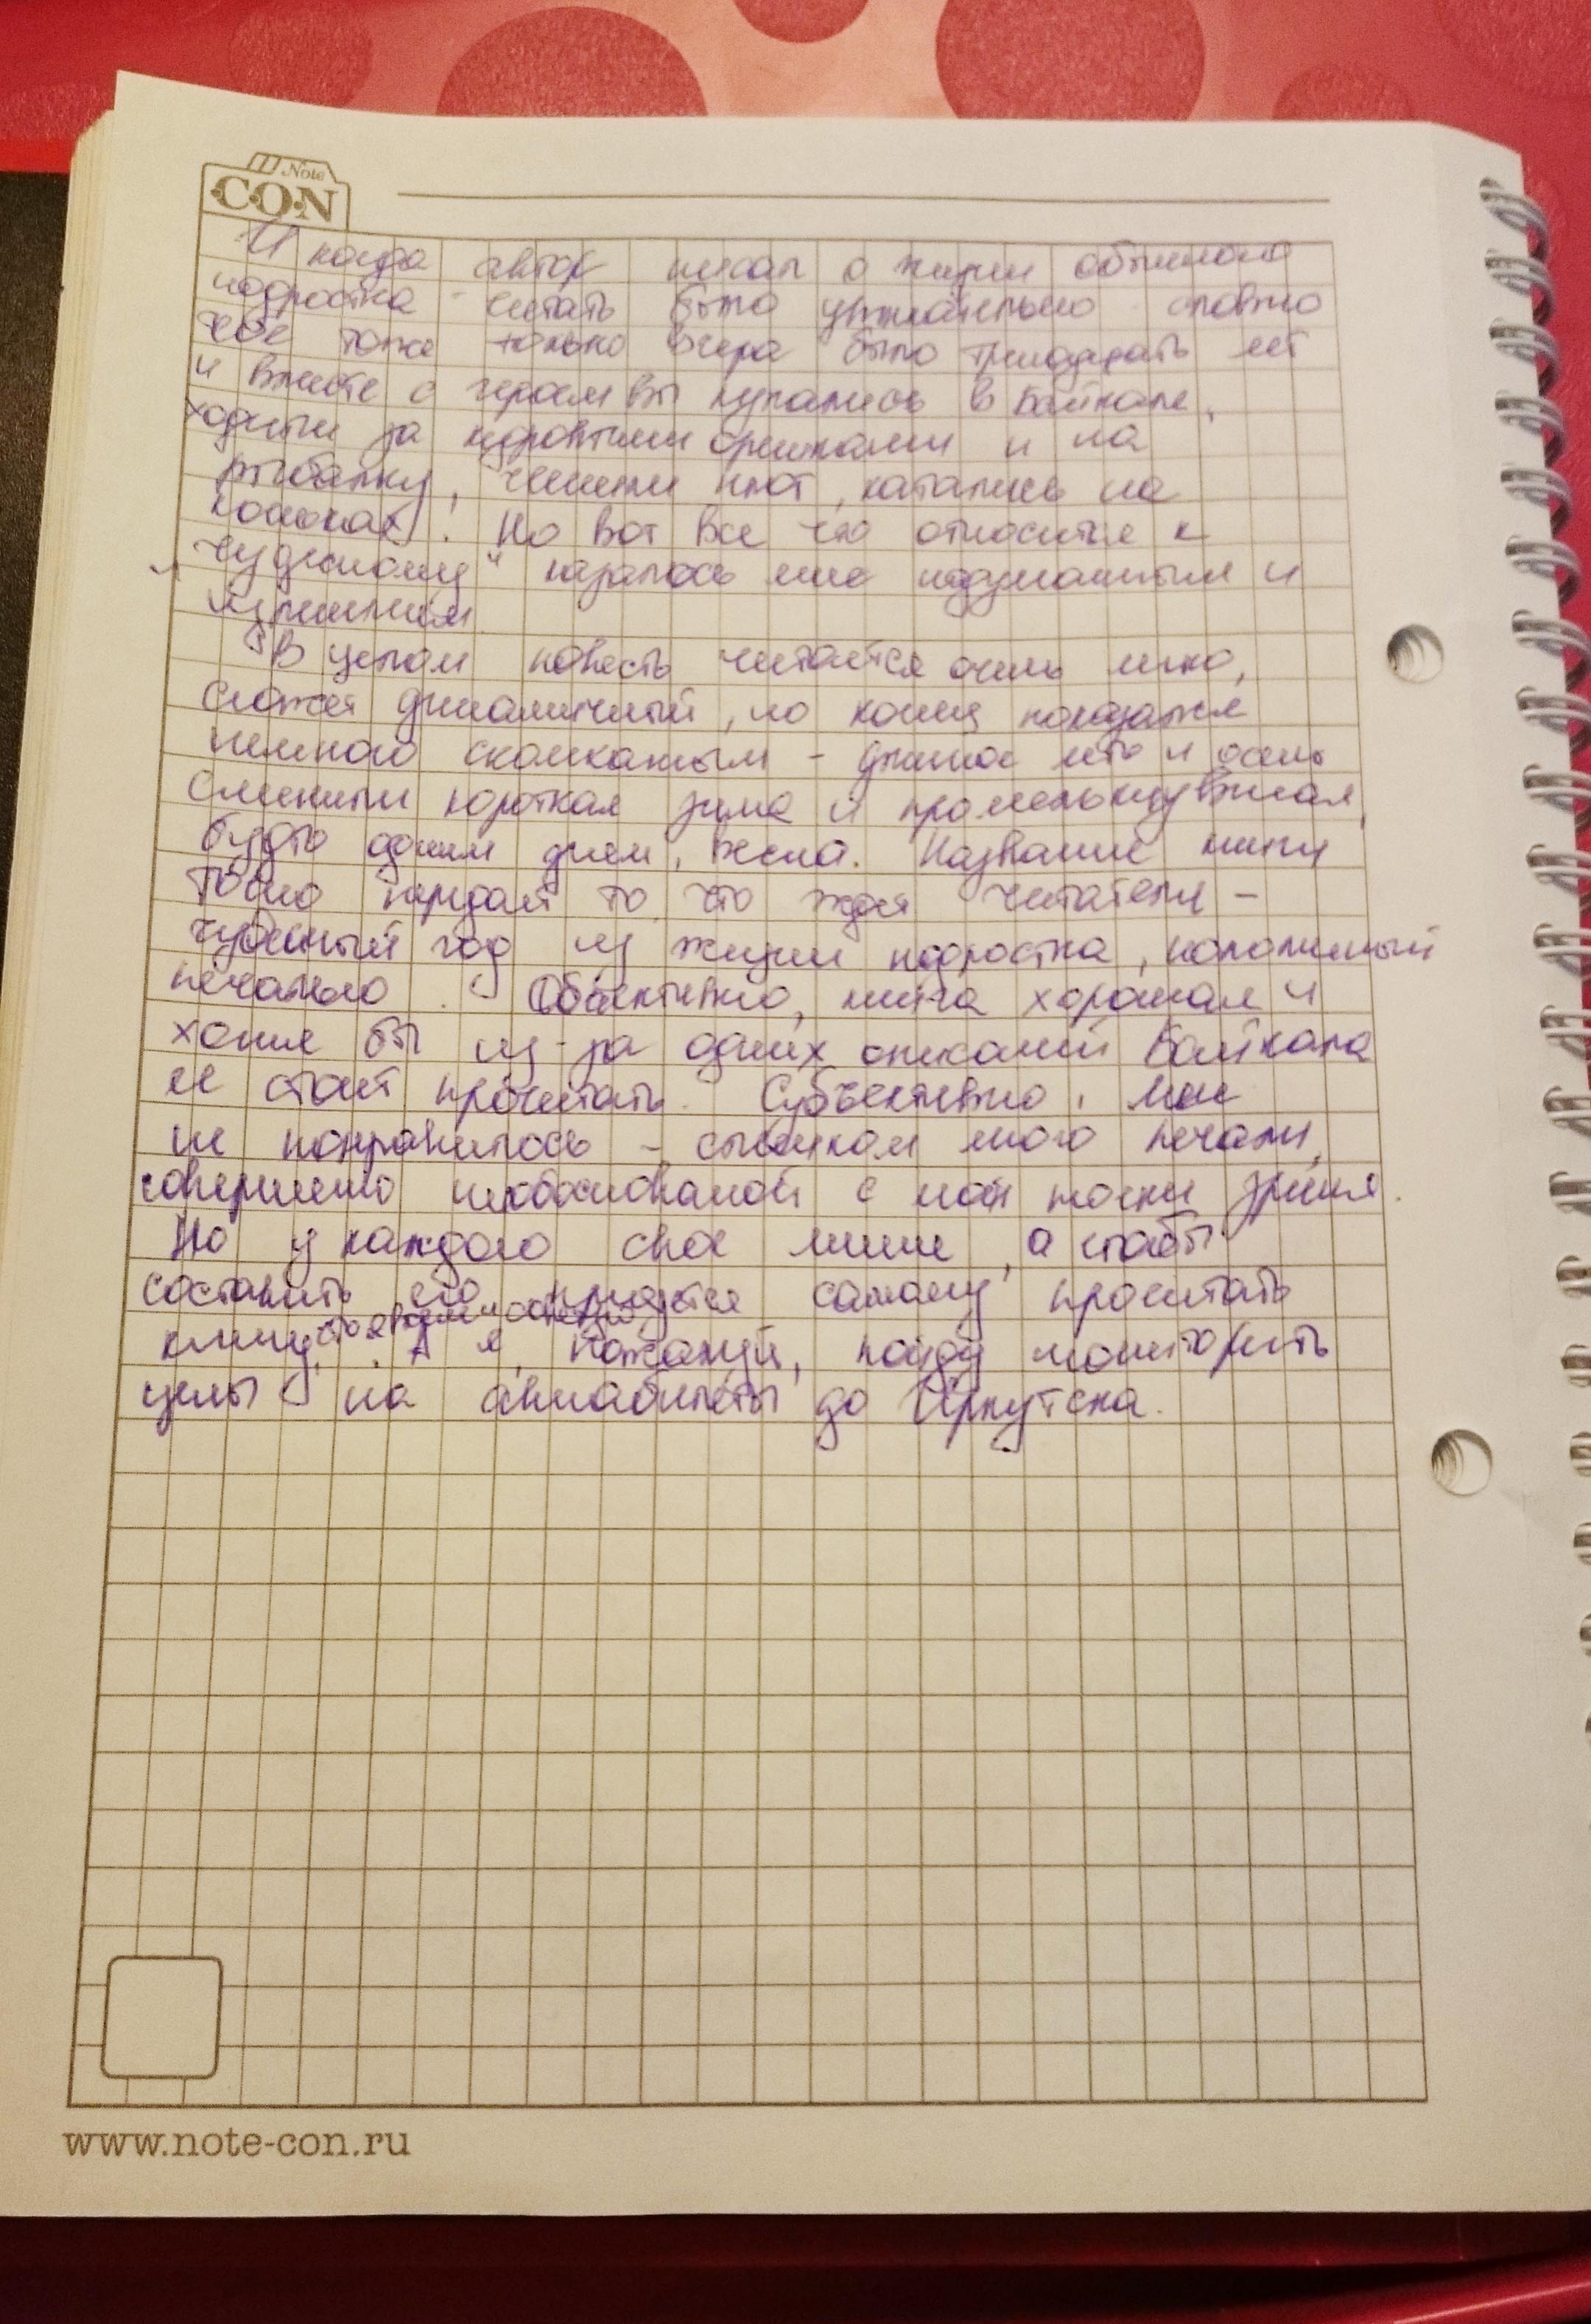 Note
CON
И когда автор писал о жизни обычного
подростка - читать было увлекательно словно
тебе тоже только вчера было тринадцать лет
и вместе с героем вы купались в Байкале,
ходили за кедровыми орешками и на
рыбалку, чинили плот, катались на
коньках! Но вот все что относится к
"чудесному" казалось мне надуманным и
лишним.
В целом повесть читается очень легко,
сюжет динамичный, но конец показался
немного скомканным - длинное лето и осень
сменили короткая зима и промелькнувшая,
будто одним днем, весна. Название книги
точно передает то, что ждет читателя -
чудесный год из жизни подростка, наполненный
печалью. Объективно, книга хорошая и
хотя бы из-за одних описаний Байкала
ее стоит прочитать. Субъективно, мне
не понравилось - слишком много печали,
совершенно необоснованной с моей точки зрения.
Но у каждого свое мнение, а чтобы
составить его придется самому прочитать
книгу, что я вам и советую. А я, пожалуй, пойду мониторить
цены на авиабилеты до Иркутска.
www.note-con.ru